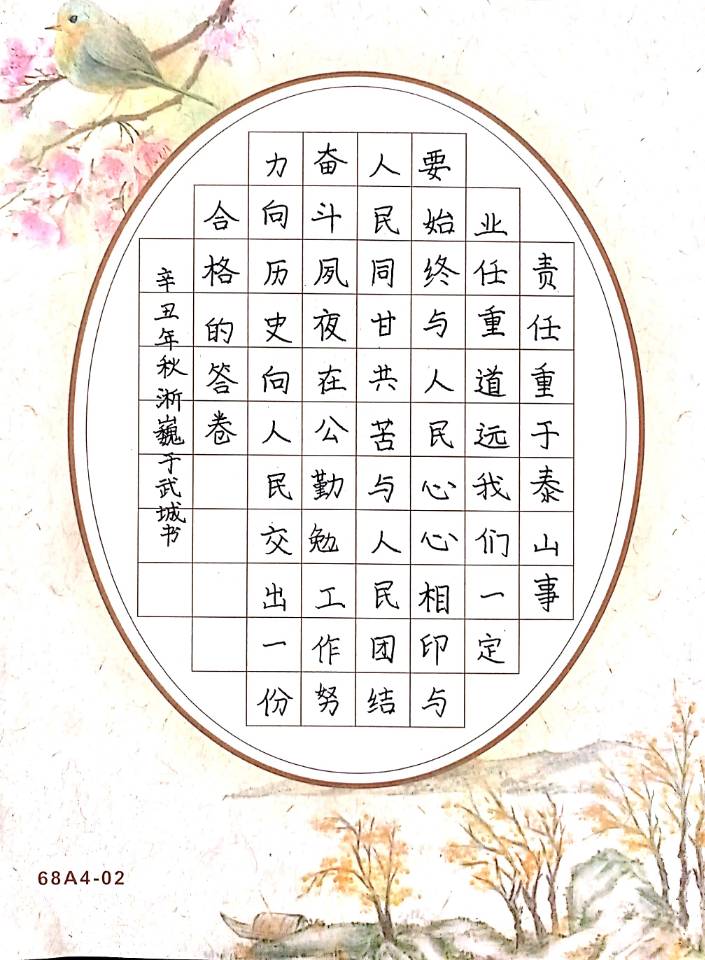 责任重于泰山事
业任重道远我们一定
要始终与人民心心相印与
人民同甘共苦与人民团结
奋斗夙夜在公勤勉工作努
力向历史向人民交出一份
合格的答卷
辛丑年秋淅巍于武城书
68A4-02